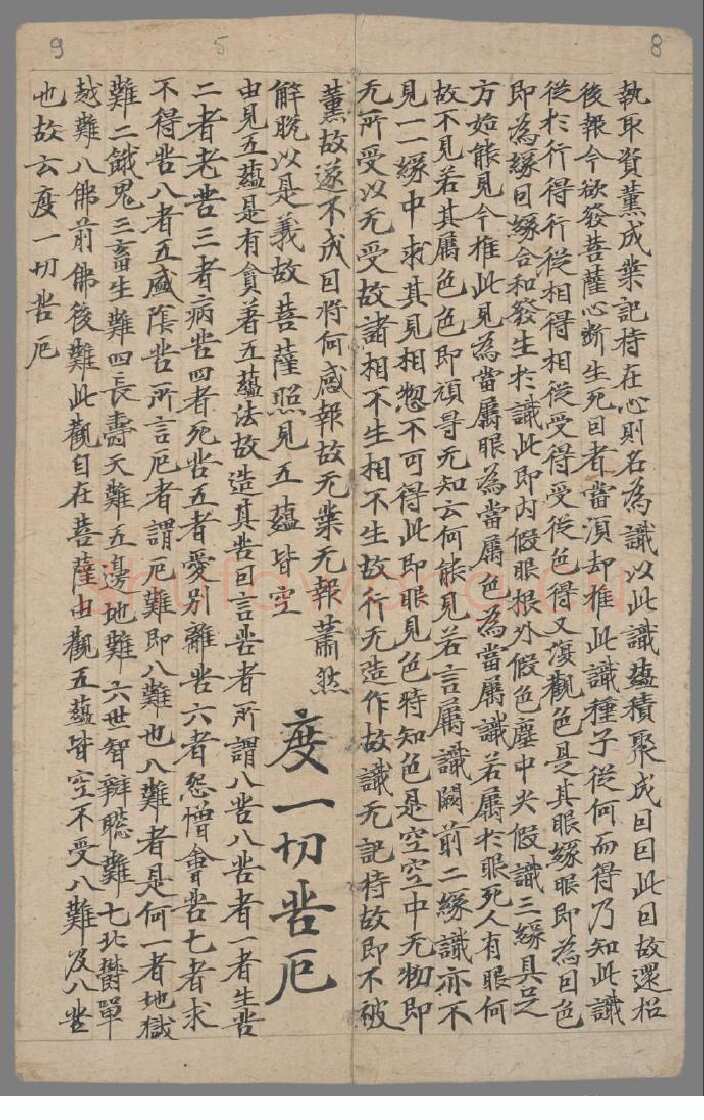 8
9
5
執取資薰成業記持在心則名為識以此識蘊積聚成因因此因故還招
後報今欲發菩薩心斷生死因者當須却推此識種子從何而得乃知此識
從於行得行從相得相從受得受從色得又復觀色是其眼緣眼即為因色
即為緣因緣合和發生於識此即內假眼根外假色塵中央假識三緣具足
方始能見今推此見為當屬眼為當屬色為當屬識若屬於眼死人有眼何
故不見若其屬色色即頑㝵无知云何能見若言屬識闕前二緣識亦不
見一一緣中求其見相惣不可得此即眼見色時知色是空空中无物即
无所受以无受故諸相不生相不生故行无造作故識无記持故即不被
薰故遂不成因將何感報故无業无報蕭然
解脫以是義故菩薩照見五蘊皆空
度一切苦厄
由見五蘊是有貪著五蘊法故造其苦因言苦者所謂八苦八苦者一者生苦
二者老苦三者病苦四者死苦五者愛別離苦六者怨憎會苦七者求
不得苦八者五盛陰苦所言厄者謂厄難即八難也八難者是何一者地獄
難二餓鬼三畜生難四長壽天難五邊地難六世智辯聰難七北欝單
越難八佛前佛後難此觀自在菩薩由觀五蘊皆空不受八難及八苦
也故云度一切苦厄